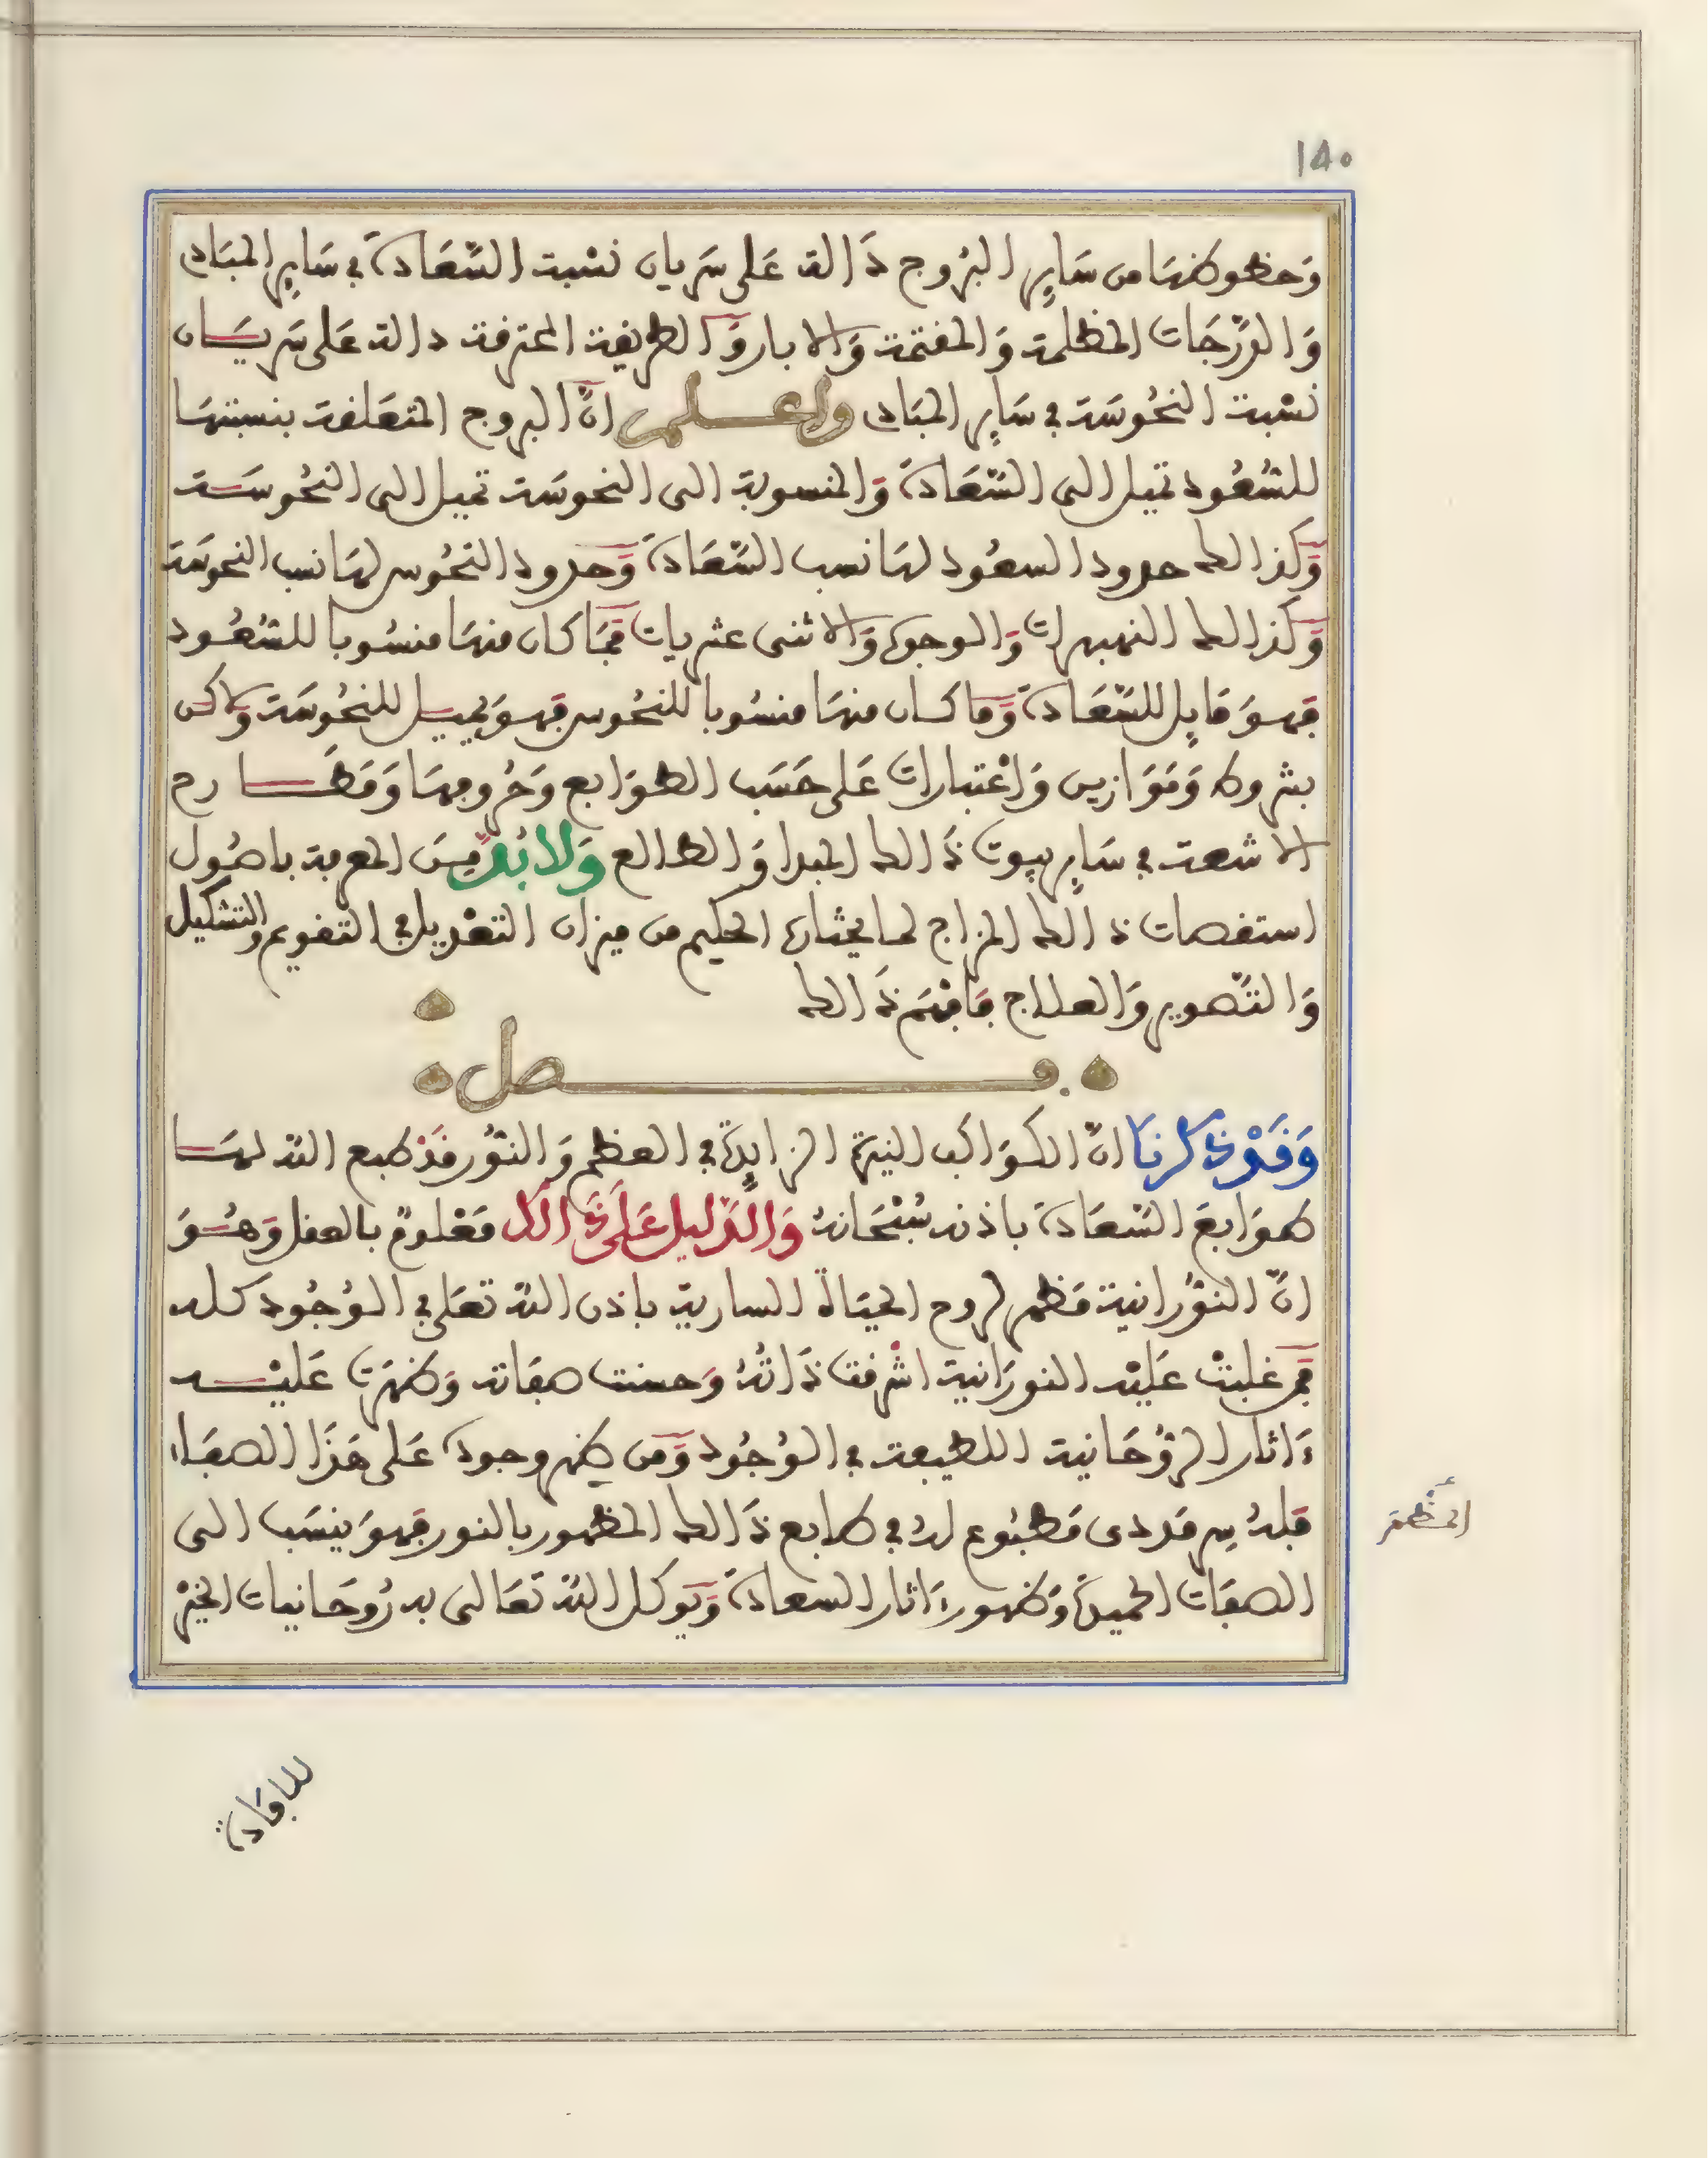 ١٥٠
وَحظوظها من سَايِر البُروج دَالة عَلى سَريان نسْبة السَّعَادة في سَايِر المبَاد
وَالدَّرَجَات المظلمة وَالمقتمة وَالابار وَالطريقة المحترقة دالة عَلى سَريَان
نسْبة النحُوسَة في سَايِر المبَاد واعلم انَّ البروج المتعَلقة بنسبتهَا
للسُّعُود تميل الى السَّعَادة وَالمنسوبة الى النحوسَة تميل الى النحُوسَة
وَكذالك حدود السعُود لهَا نسب السَّعَادة وَحدود النحُوس لهَا نسب النحوسَة
وَكذالك النهبهرات وَالوجوه وَالاثنى عشريات فمَا كان منهَا منسُوبا للسُّعُود
فهوَ قابِل للسَّعَادة وَمَا كان منهَا منسُوبا للنحُوس فهوَ يميل للنحُوسَة ولاكن
بشروط وَمَوَازين وَاعْتبارات عَلى حَسَب الطوَابع وَخُروجهَا وَمَطَارح
الاشعة في سَايِر بيوت ذَالك المبدا وَالطالع وَلا بُدَّ مِنَ المعرفة باصُول
استقصات ذالك المزاج لما يحتاره الحكيم من ميزان التعْديل في التقويم والتشكيل
وَالتَّصوير وَالعلاج فَافهَم ذَالك
فصل
وَقَدْ ذكرنَا انَّ الكوَاكب النيرة الزايِدة في العظم وَالنُّور قَدْ طبع الله لهَا
طوَابعَ السَّعَادة باذنه سُبْحَانهُ وَالدَّليل عَلَى ذَالك مَعْلومٌ بالعقل وَهُوَ
انَّ النُّورانية مَظهر لروح الحيَاة السارية باذن الله تعَلى في الوُجُود كله
فمَن غلبتْ عَليْه النورَانية اشْرقت ذَاتُهُ وَحسنت صفاته وَظهَرت عَليْه
ءَاثار الرُّوحَانية اللطيفة في الوُجُود وَمَن ظهر وجوده عَلى هَذَا الصفَاء
فلهُ سِر مَددى مَطبُوع لهُ في طابع ذَالك المظهور بالنور فهوَ ينسَب الى
الصفَات الحميدة وَظهور ءَاثار السعادة وَيوكل الله تعَالى به رُوحَانيات الخيْر
للافَادة